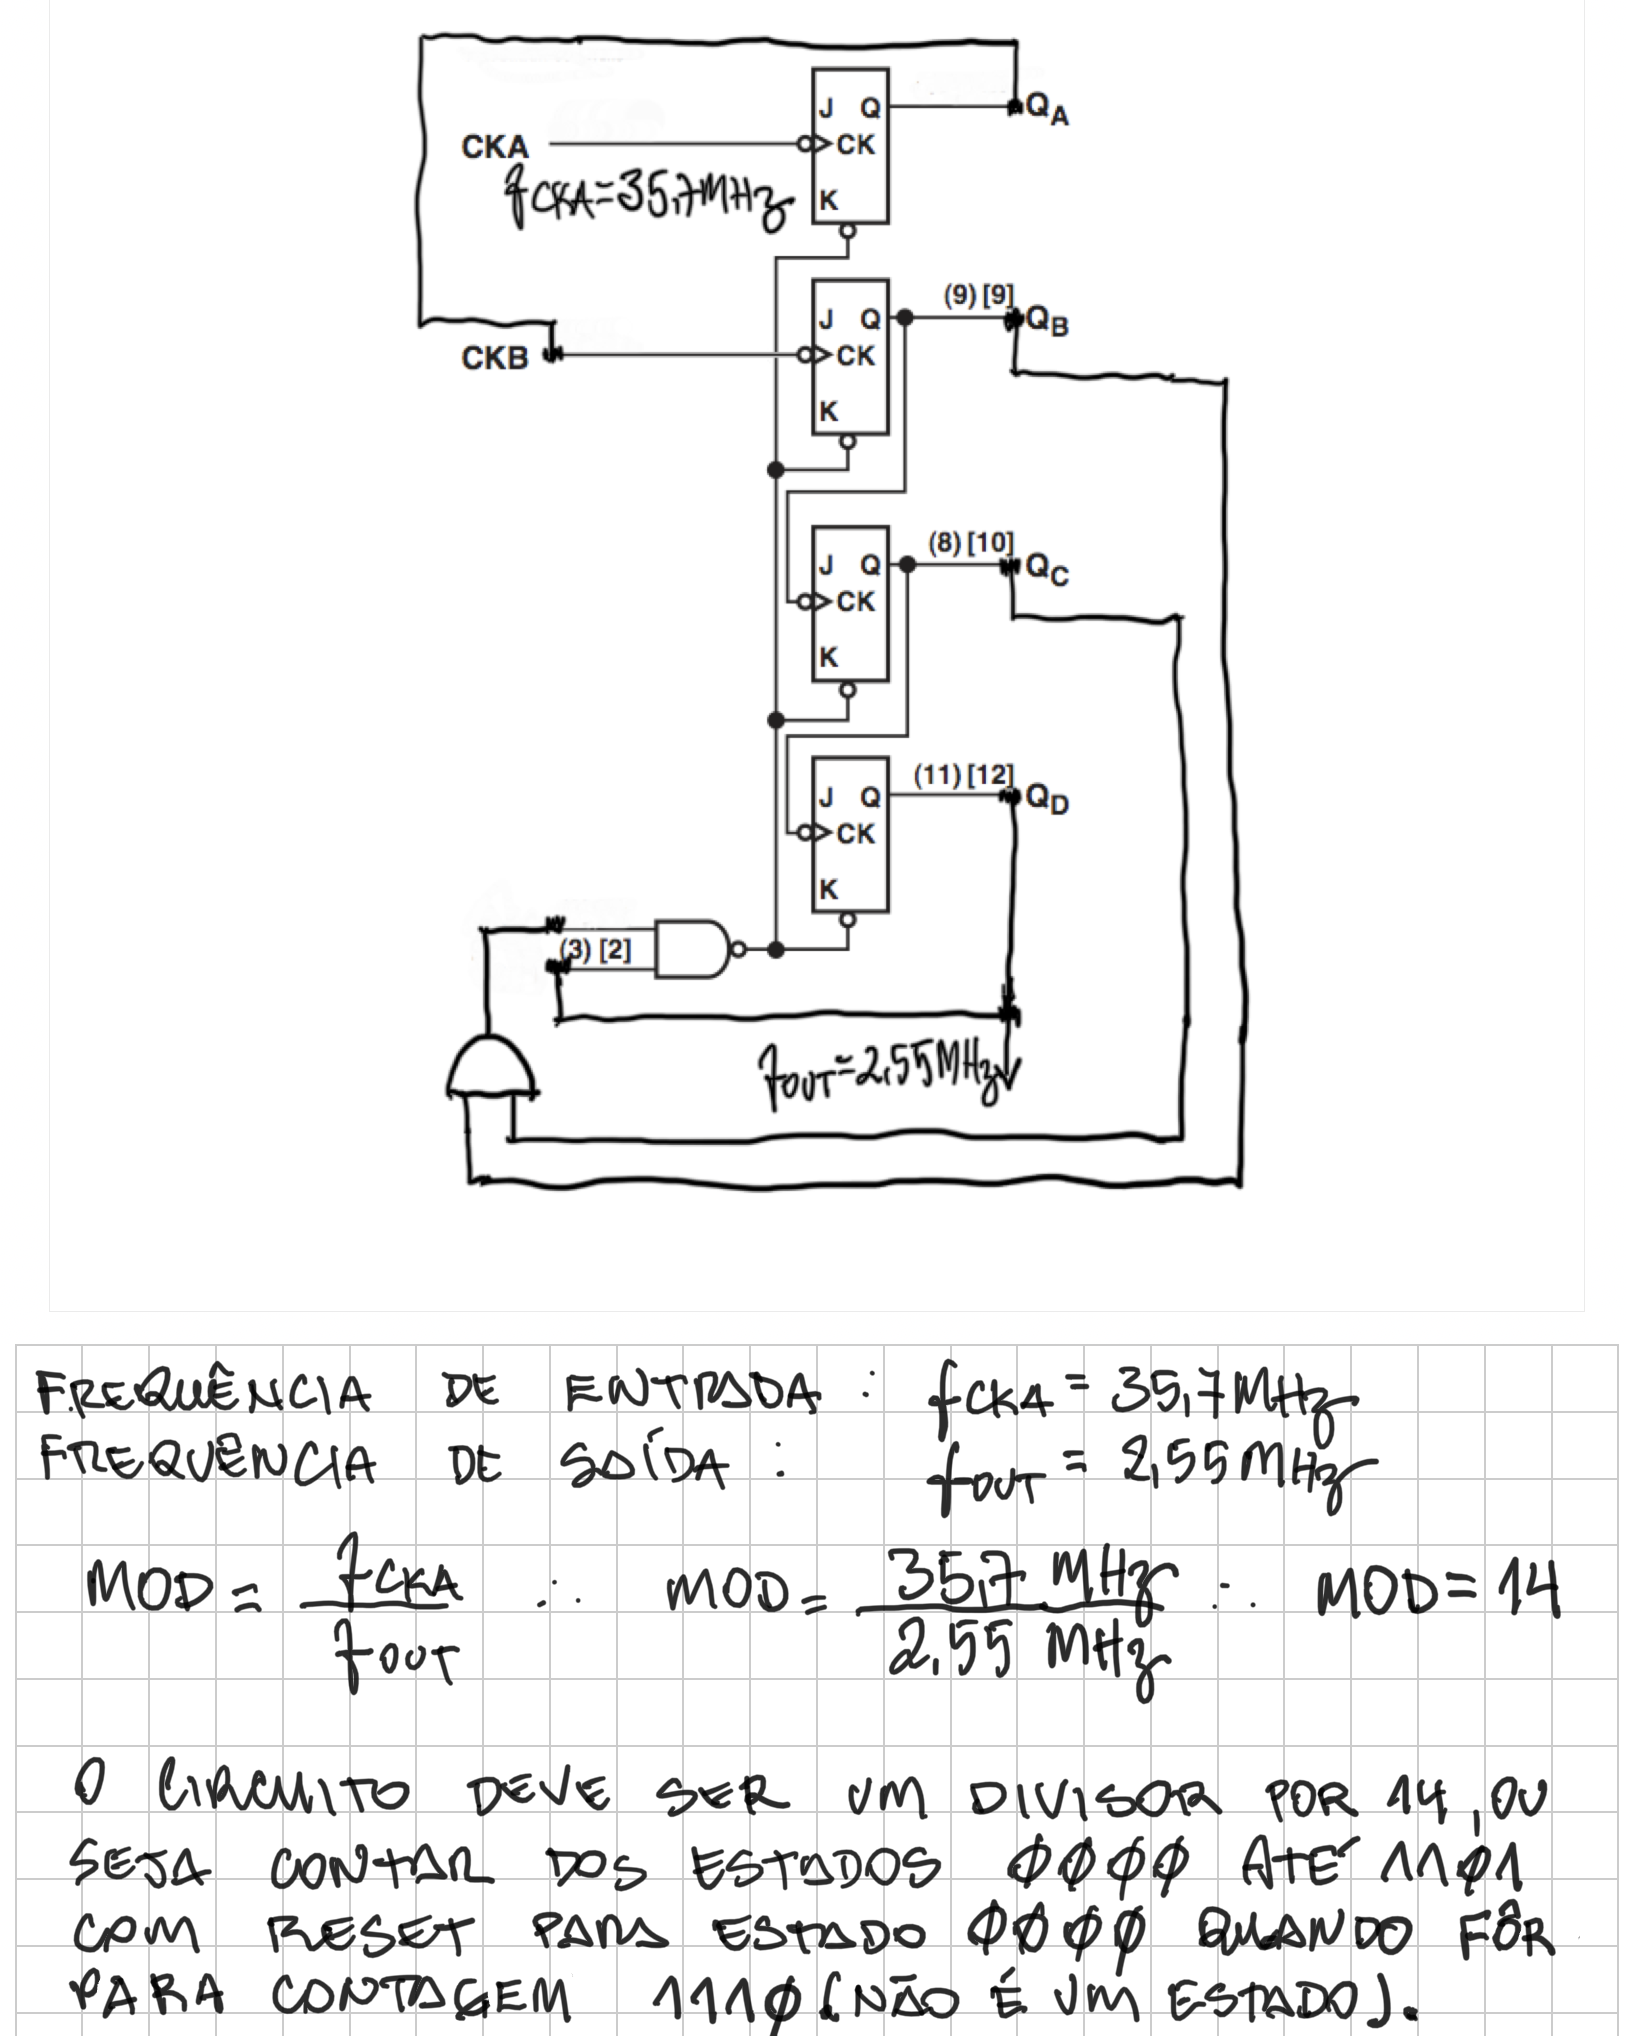 J Q QA
CKA CK
fCKA=35,7MHz
K
(9) [9]
J Q QB
CKB CK
K
(8) [10]
J Q QC
CK
K
(11) [12]
J Q QD
CK
K
(3) [2]
fOUT=2,55MHz
FREQUÊNCIA DE ENTRADA : fCKA = 35,7MHz
FREQUÊNCIA DE SAÍDA : fOUT = 2,55MHz
MOD = fCKA / fOUT ∴ MOD = 35,7 MHz / 2,55 MHz ∴ MOD = 14
O CIRCUITO DEVE SER UM DIVISOR POR 14, OU
SEJA CONTAR DOS ESTADOS 0000 ATÉ 1101
COM RESET PARA ESTADO 0000 QUANDO FÔR
PARA CONTAGEM 1110 (NÃO É UM ESTADO).